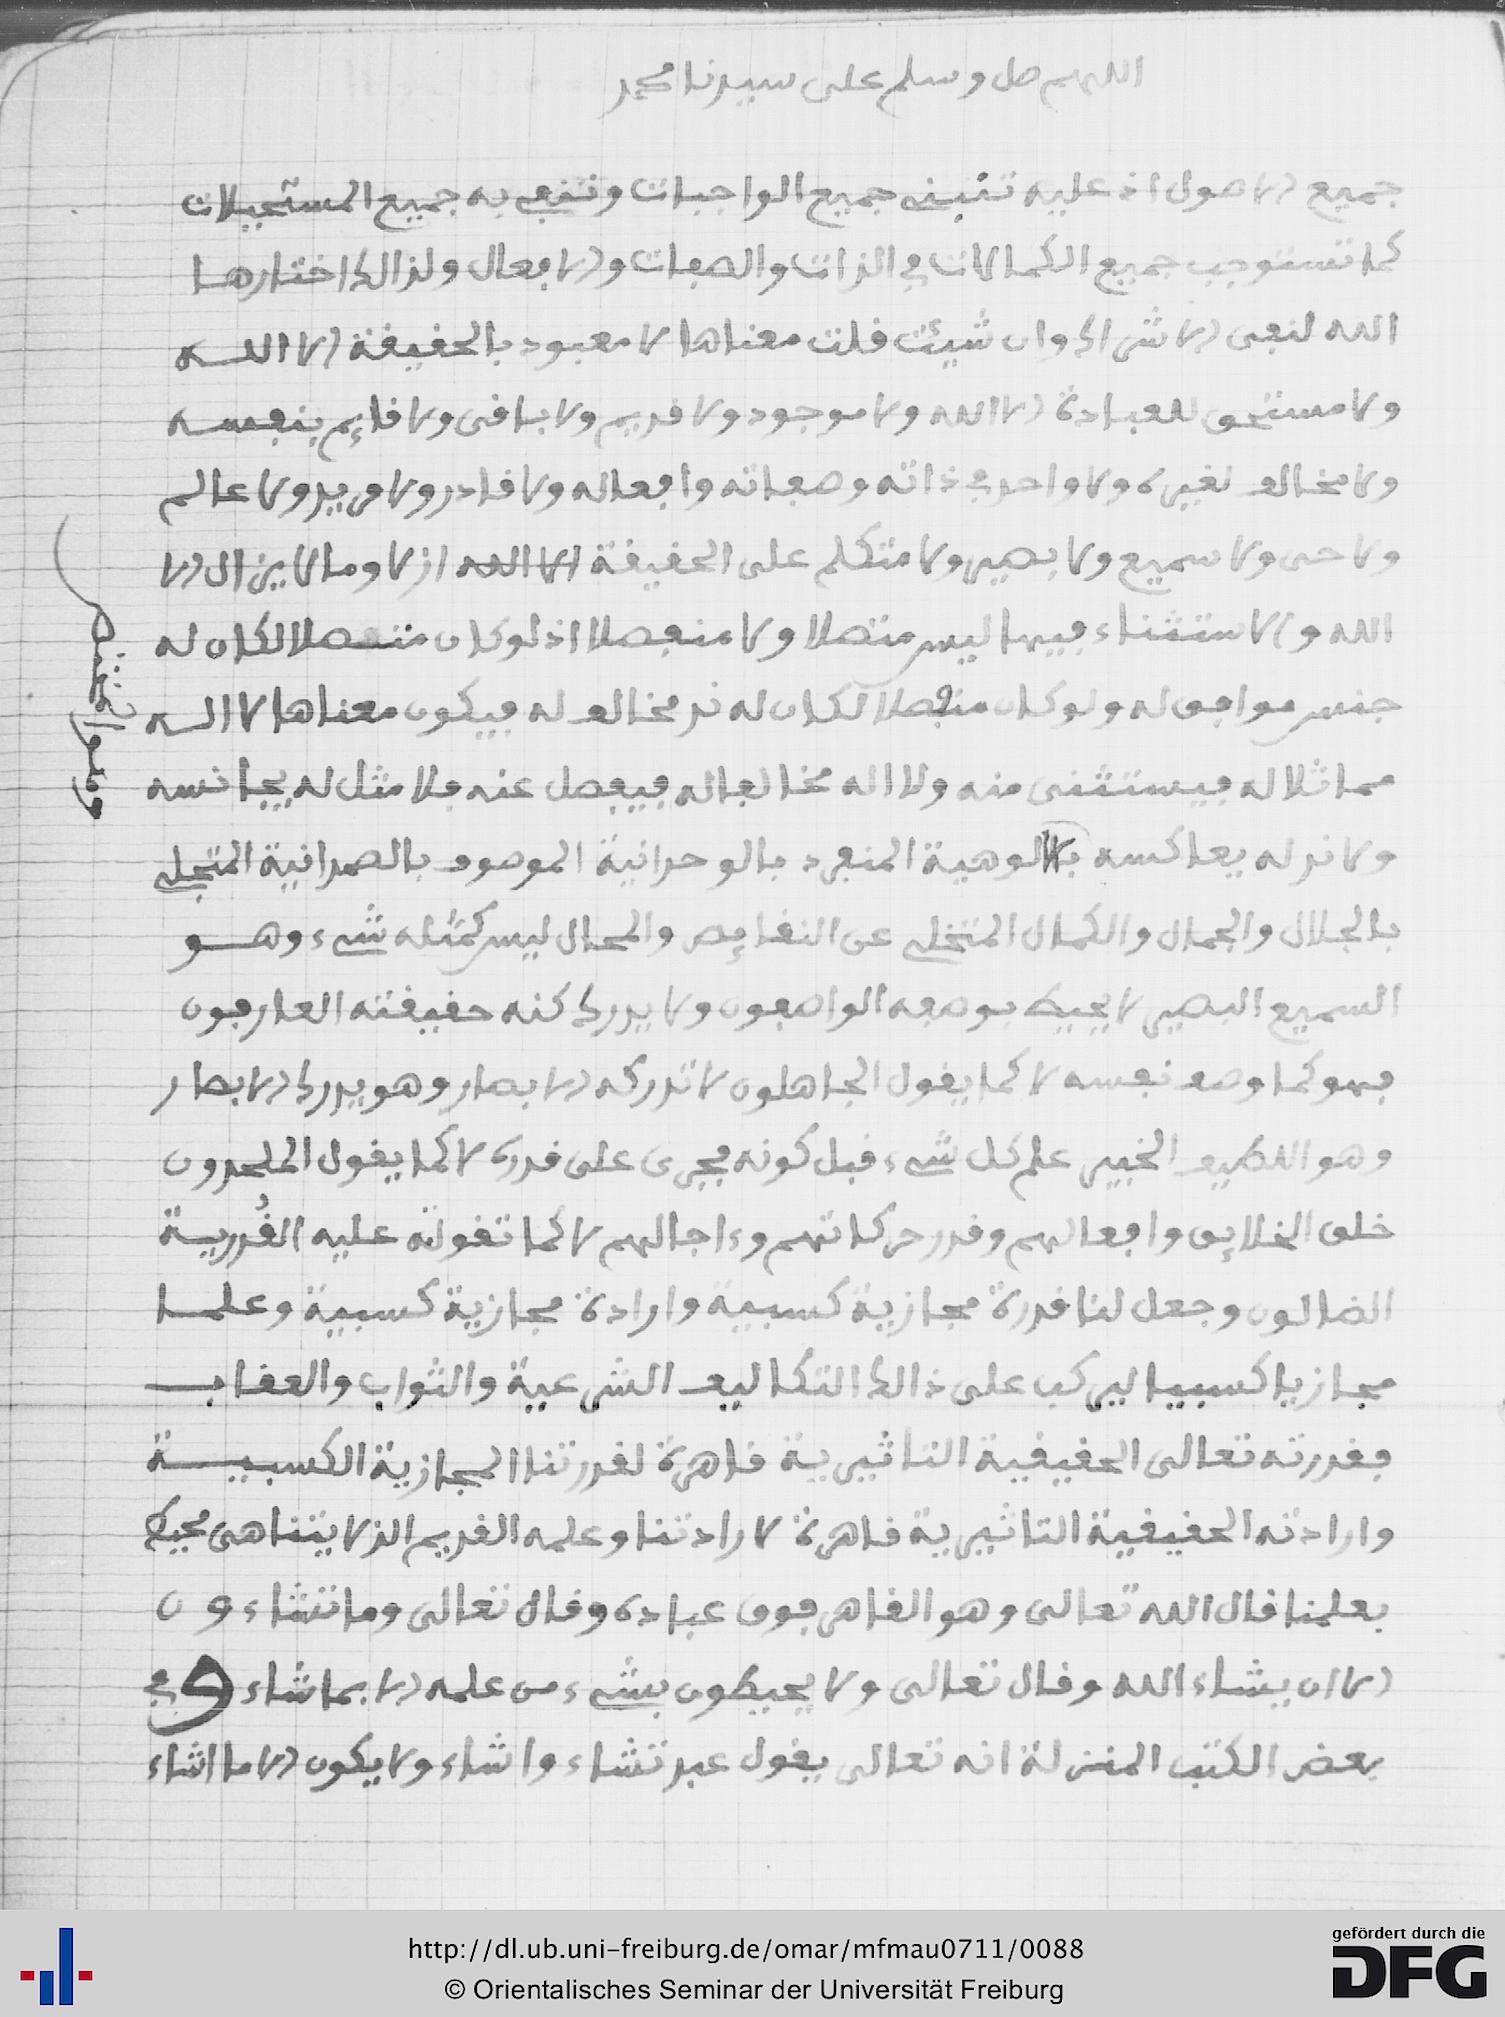 اللهم صل وسلم على سيدنا محمد
جميع الاصول اذ عليه تنبني جميع الواجبات وتنفى به جميع المستحيلات
كما تستوجب جميع الكمالات في الذات والصفات والافعال ولذالك اختارها
الله لنفي الاشراك وان شيئت قلت معناها لا معبود بالحقيقة الا الله
ولا مستحق للعبادة الا الله ولا موجود ولا قديم ولا باقى ولا قايم بنفسه
ولا مخالف لغيره ولا واحد في ذاته وصفاته وافعاله ولا قادر ولا مريد ولا عالم
ولا حى ولا سميع ولا بصير ولا متكلم على الحقيقة الا الله ازلا وما لا يزال الا
الله والاستثناء فيها ليس متصلا ولا منفصلا اذ لو كان متصلا لكان له
جنس موافق له ولو كان منفصلا لكان له ند مخالف له فيكون معناها لا اله
مماثلا له فيستثنى منه ولا اله مخالفا له فيفصل عنه فلا مثل له يجانسه
ولا ند له يعاكسه بالالوهية المنفرد بالوحدانية الموصوف بالصمدانية المتجلي
بالجلال والجمال والكمال المتخلي عن النقايص والمحال ليس كمثله شيء وهو
السميع البصير لا يحيط بوصفه الواصفون ولا يدرك كنه حقيقته العارفون
فهو كما وصف نفسه لا كما يقول الجاهلون لا تدركه الابصار وهو يدرك الابصار
وهو اللطيف الخبير علم كل شيء قبل كونه فجرى على قدره لا كما يقول الملحدون
خلق الخلايق وافعالهم وقدر حركاتهم وءاجالهم لا كما تقولة عليه القُدرية
الضالون وجعل لنا قدرة مجازية كسبية وارادة مجازية كسبية وعلما
مجازيا كسبيا ليركب على ذالك التكاليف الشرعية والثواب والعقاب
فقدرته تعالى الحقيقية التاثيرية قاهرة لقدرتنا المجازية الكسبية
وارادته الحقيقية التاثيرية قاهرة لارادتنا وعلمه القديم الذ لا يتناهى محيط
بعلمنا قال الله تعالى وهو القاهر فوق عباده وقال تعالى وما تشاءون
الا ان يشاء الله وقال تعالى ولا يحيطون بشيء من علمه الا بما شاء وفي
بعض الكتب المنزلة انه تعالى يقول عبد تشاء واشاء ولا يكون الا ما اشاء